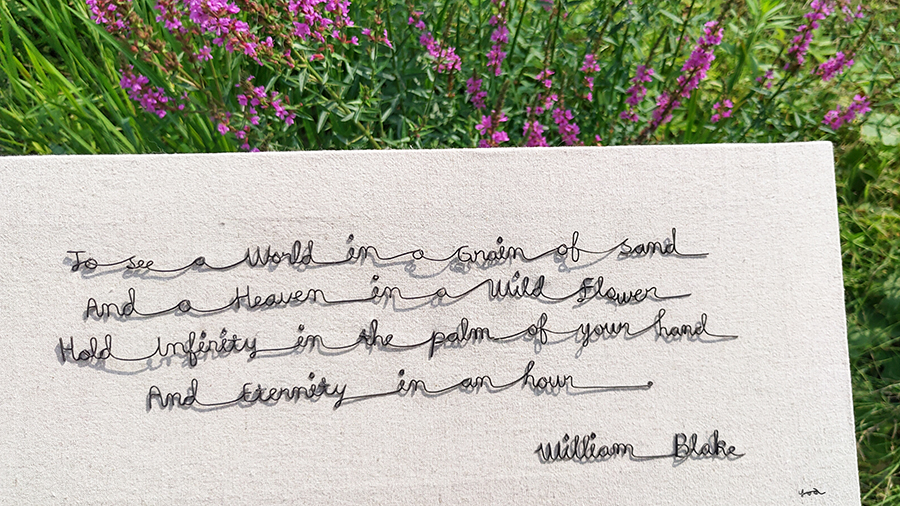 To see a World in a Grain of sand
And a Heaven in a Wild Flower
Hold Infinity in the palm of your hand
And Eternity in an hour.
William Blake